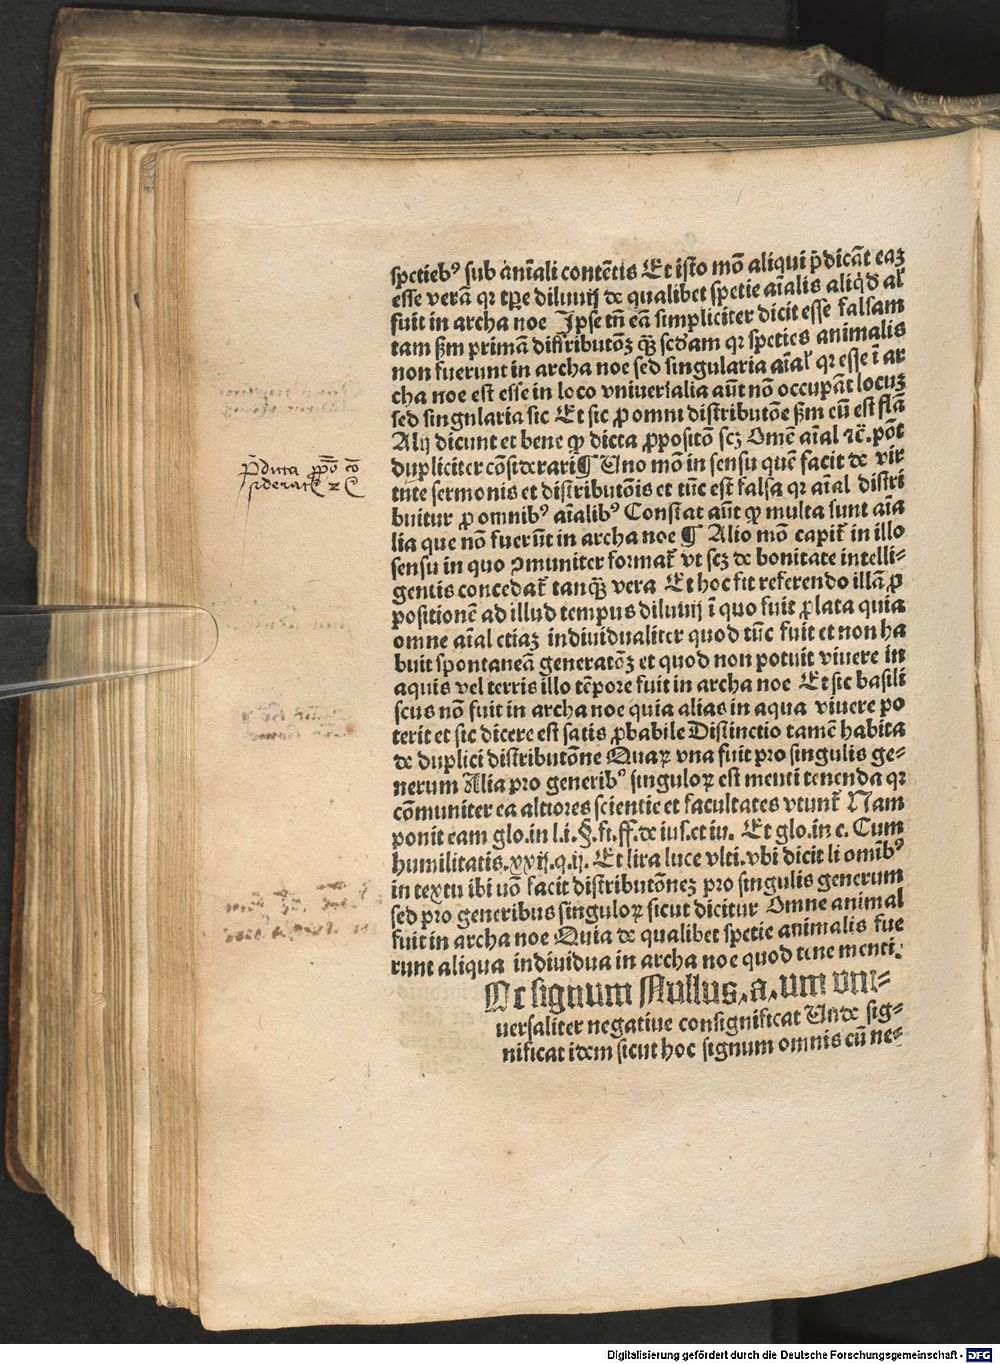 spetieb⁹ sub ani̅ali conte̅tis Et isto mo̅ aliqui p̅dica̅t eaꝫ
esse vera̅ qꝛ tp̅e diluuij de qualibet spetie ai̅alis aliq̇d al̓
fuit in archa noe Ipse tn̅ ea̅ simpliciter dicit esse falsam
tam ẜm prima̅ distributo̅ꝫ q̅ꝫ scd̓am qꝛ speties animalis
non fuerunt in archa noe sed singularia ai̅al̓ qꝛ esse i̅ ar
cha noe est esse in loco vniuersalia au̅t no̅ occupa̅t locuꝫ
sed singnlaria sic Et sic ꝓ omni distributo̅e ẜm eu̅ est fl̅a
Alij dicunt et bene ꝙ dicta ꝓposito̅ scꝫ Ome̅ ai̅al ⁊c̅. po̅t
dupliciter co̅siderari ¶ Uno mo̅ in sensu que̅ facit de vir
tute sermonis et distributo̅is et tu̅c est falsa qꝛ ai̅al distri
buitur ꝓ omnib⁹ ai̅alib⁹ Constat au̅t ꝙ multa sunt ai̅a
lia que no̅ fueru̅t in archa noe ¶ Alio mo̅ capit᷑ in illo
sensu in quo ꝯmuniter format᷑ vt scꝫ de bonitate intelli⸗
gentis concedat᷑ tanq̅ꝫ vera Et hoc fit referendo illa̅ ꝓ
positione̅ ad illud tempus diluuij i̅ quo fuit ꝓlata quia
omne ai̅al etiaꝫ indiuidualiter quod tu̅c fuit et non ha
buit spontanea̅ generato̅ꝫ et quod non potuit viuere in
aquis vel terris illo te̅pore fuit in archa noe Et sic basili
scus no̅ fuit in archa noe quia alias in aqua viuere po
terit et sic dicere est satis ꝓbabile Distinctio tame̅ habita
de duplici distributo̅ne Quaꝝ vna fuit pro singulis ge⸗
nerum Alia pro generib⁹ singuloꝝ est menti tenenda qꝛ
co̅muniter ea altiores scientie et facultates vtunt᷑ Nam
ponit eam glo.in l.i.§.fi.ff.de ius.et iu. Et glo.in c. Cum
humilitatis.xxij.q.ij. Et lira luce vlti.vbi dicit li omi̅b⁹
in textu ibi uo̅ facit distributo̅neꝫ pro singulis generum
sed pro generibus singuloꝝ sicut dicitur Omne animal
fuit in archa noe Quia de qualibet spetie animalis fue
runt aliqua indiuidua in archa noe quod tene menti.
At signum Nullus,a,um vni⸗
uersaliter negatiue consignificat Unde sig⸗
nificat idem sicut hoc signum omnis cu̅ ne⸗
p̅dicta ꝓpo̅ co̅
siderat᷑
Digitalisierung gefördert durch die Deutsche Forschungsgemeinschaft - DFG